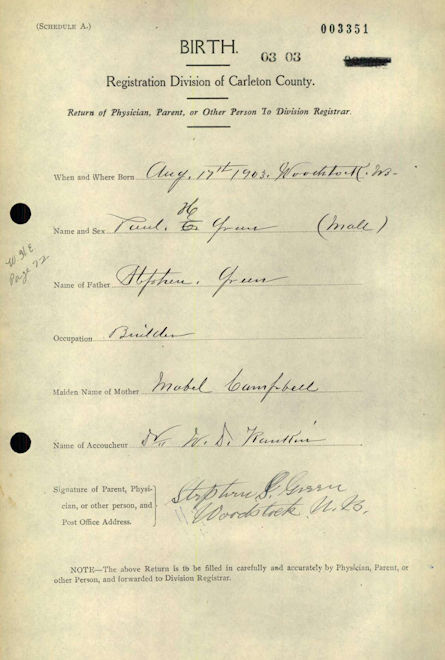 (SCHEDULE A.)
003351
BIRTH.
03 03
Registration Division of Carleton County.
Return of Physician, Parent, or Other Person To Division Registrar.
When and Where Born Aug. 17th 1903. Woodstock. N.B.
H
Name and Sex Paul. E. Green (Male)
Page 22
Name of Father Stephen. Green
Occupation Builder
Maiden Name of Mother Mabel Campbell
Name of Accoucheur Dr. W. D. Rankin
Signature of Parent, Physi-
cian, or other person, and
Post Office Address.
Stephen G. Green
Woodstock N.B.
NOTE—The above Return is to be filled in carefully and accurately by Physician, Parent, or
other Person, and forwarded to Division Registrar.